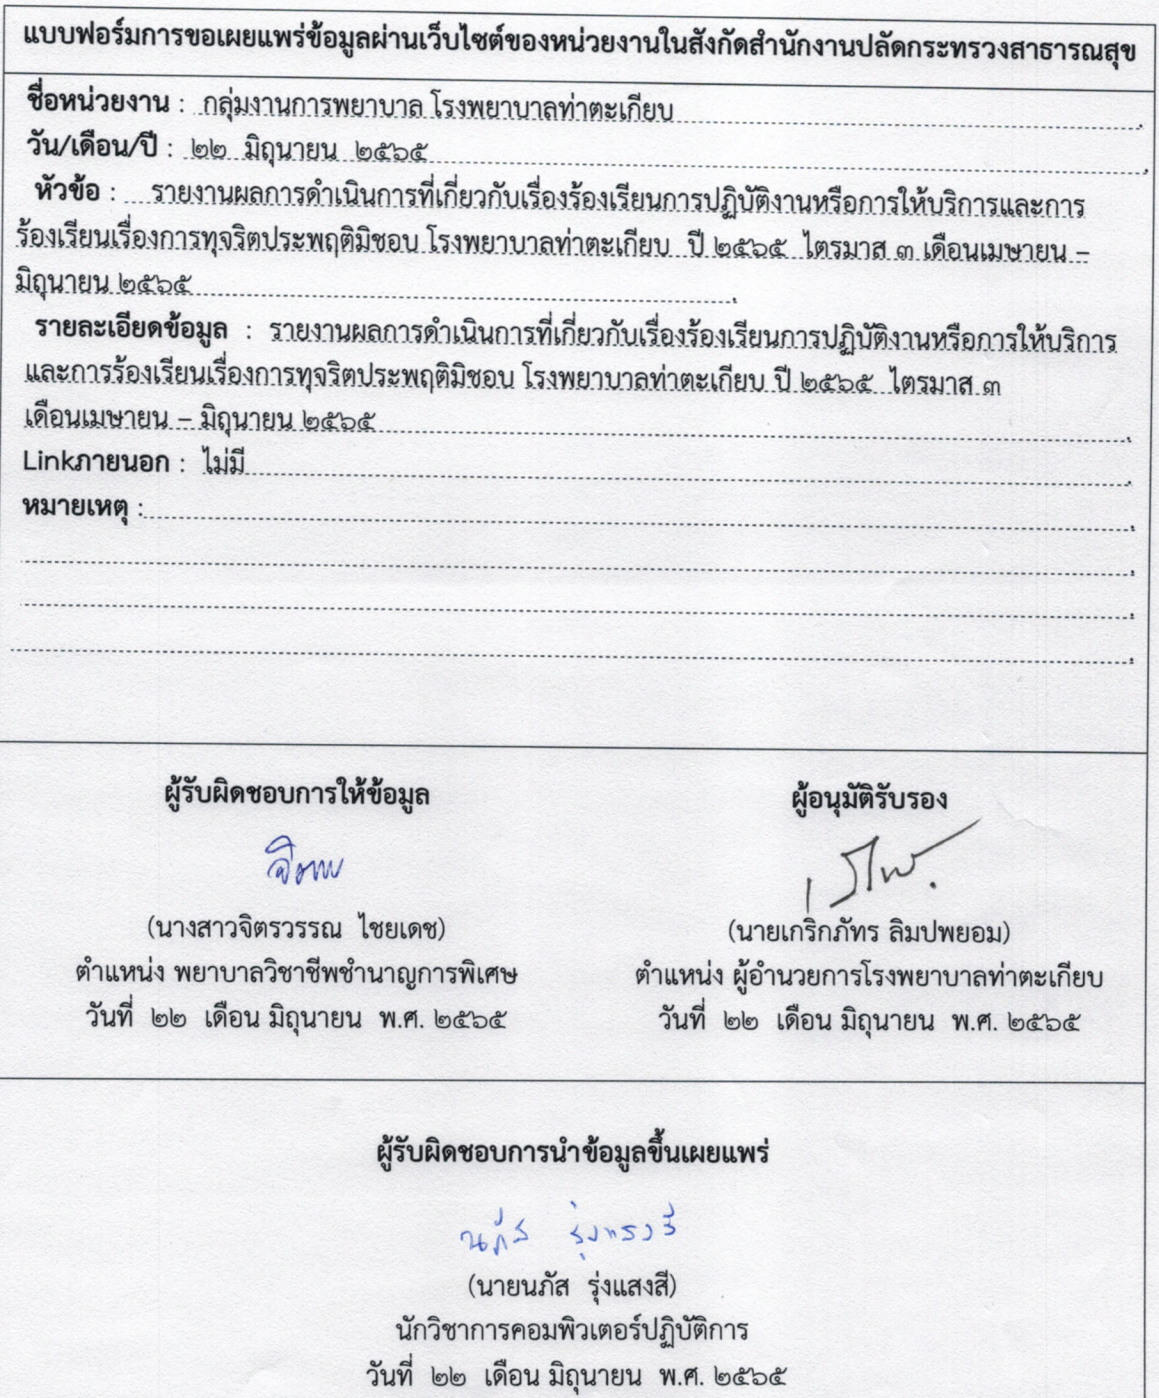 แบบฟอร์มการขอเผยแพร่ข้อมูลผ่านเว็บไซต์ของหน่วยงานในสังกัดสำนักงานปลัดกระทรวงสาธารณสุข
ชื่อหน่วยงาน : กลุ่มงานการพยาบาล โรงพยาบาลท่าตะเกียบ
วัน/เดือน/ปี : ๒๒ มิถุนายน ๒๕๖๕
หัวข้อ : รายงานผลการดำเนินการที่เกี่ยวกับเรื่องร้องเรียนการปฏิบัติงานหรือการให้บริการและการ
ร้องเรียนเรื่องการทุจริตประพฤติมิชอบ โรงพยาบาลท่าตะเกียบ ปี ๒๕๖๕ ไตรมาส ๓ เดือนเมษายน –
มิถุนายน ๒๕๖๕
รายละเอียดข้อมูล : รายงานผลการดำเนินการที่เกี่ยวกับเรื่องร้องเรียนการปฏิบัติงานหรือการให้บริการ
และการร้องเรียนเรื่องการทุจริตประพฤติมิชอบ โรงพยาบาลท่าตะเกียบ ปี ๒๕๖๕ ไตรมาส ๓
เดือนเมษายน – มิถุนายน ๒๕๖๕
Linkภายนอก : ไม่มี
หมายเหตุ :
ผู้รับผิดชอบการให้ข้อมูล
(นางสาวจิตรวรรณ ไชยเดช)
ตำแหน่ง พยาบาลวิชาชีพชำนาญการพิเศษ
วันที่ ๒๒ เดือน มิถุนายน พ.ศ. ๒๕๖๕
ผู้อนุมัติรับรอง
(นายเกริกภัทร ลิมปพยอม)
ตำแหน่ง ผู้อำนวยการโรงพยาบาลท่าตะเกียบ
วันที่ ๒๒ เดือน มิถุนายน พ.ศ. ๒๕๖๕
ผู้รับผิดชอบการนำข้อมูลขึ้นเผยแพร่
นภัส รุ่งแสงสี
(นายนภัส รุ่งแสงสี)
นักวิชาการคอมพิวเตอร์ปฏิบัติการ
วันที่ ๒๒ เดือน มิถุนายน พ.ศ. ๒๕๖๕